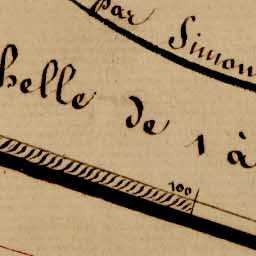 par Simon
helle de 1 à
100